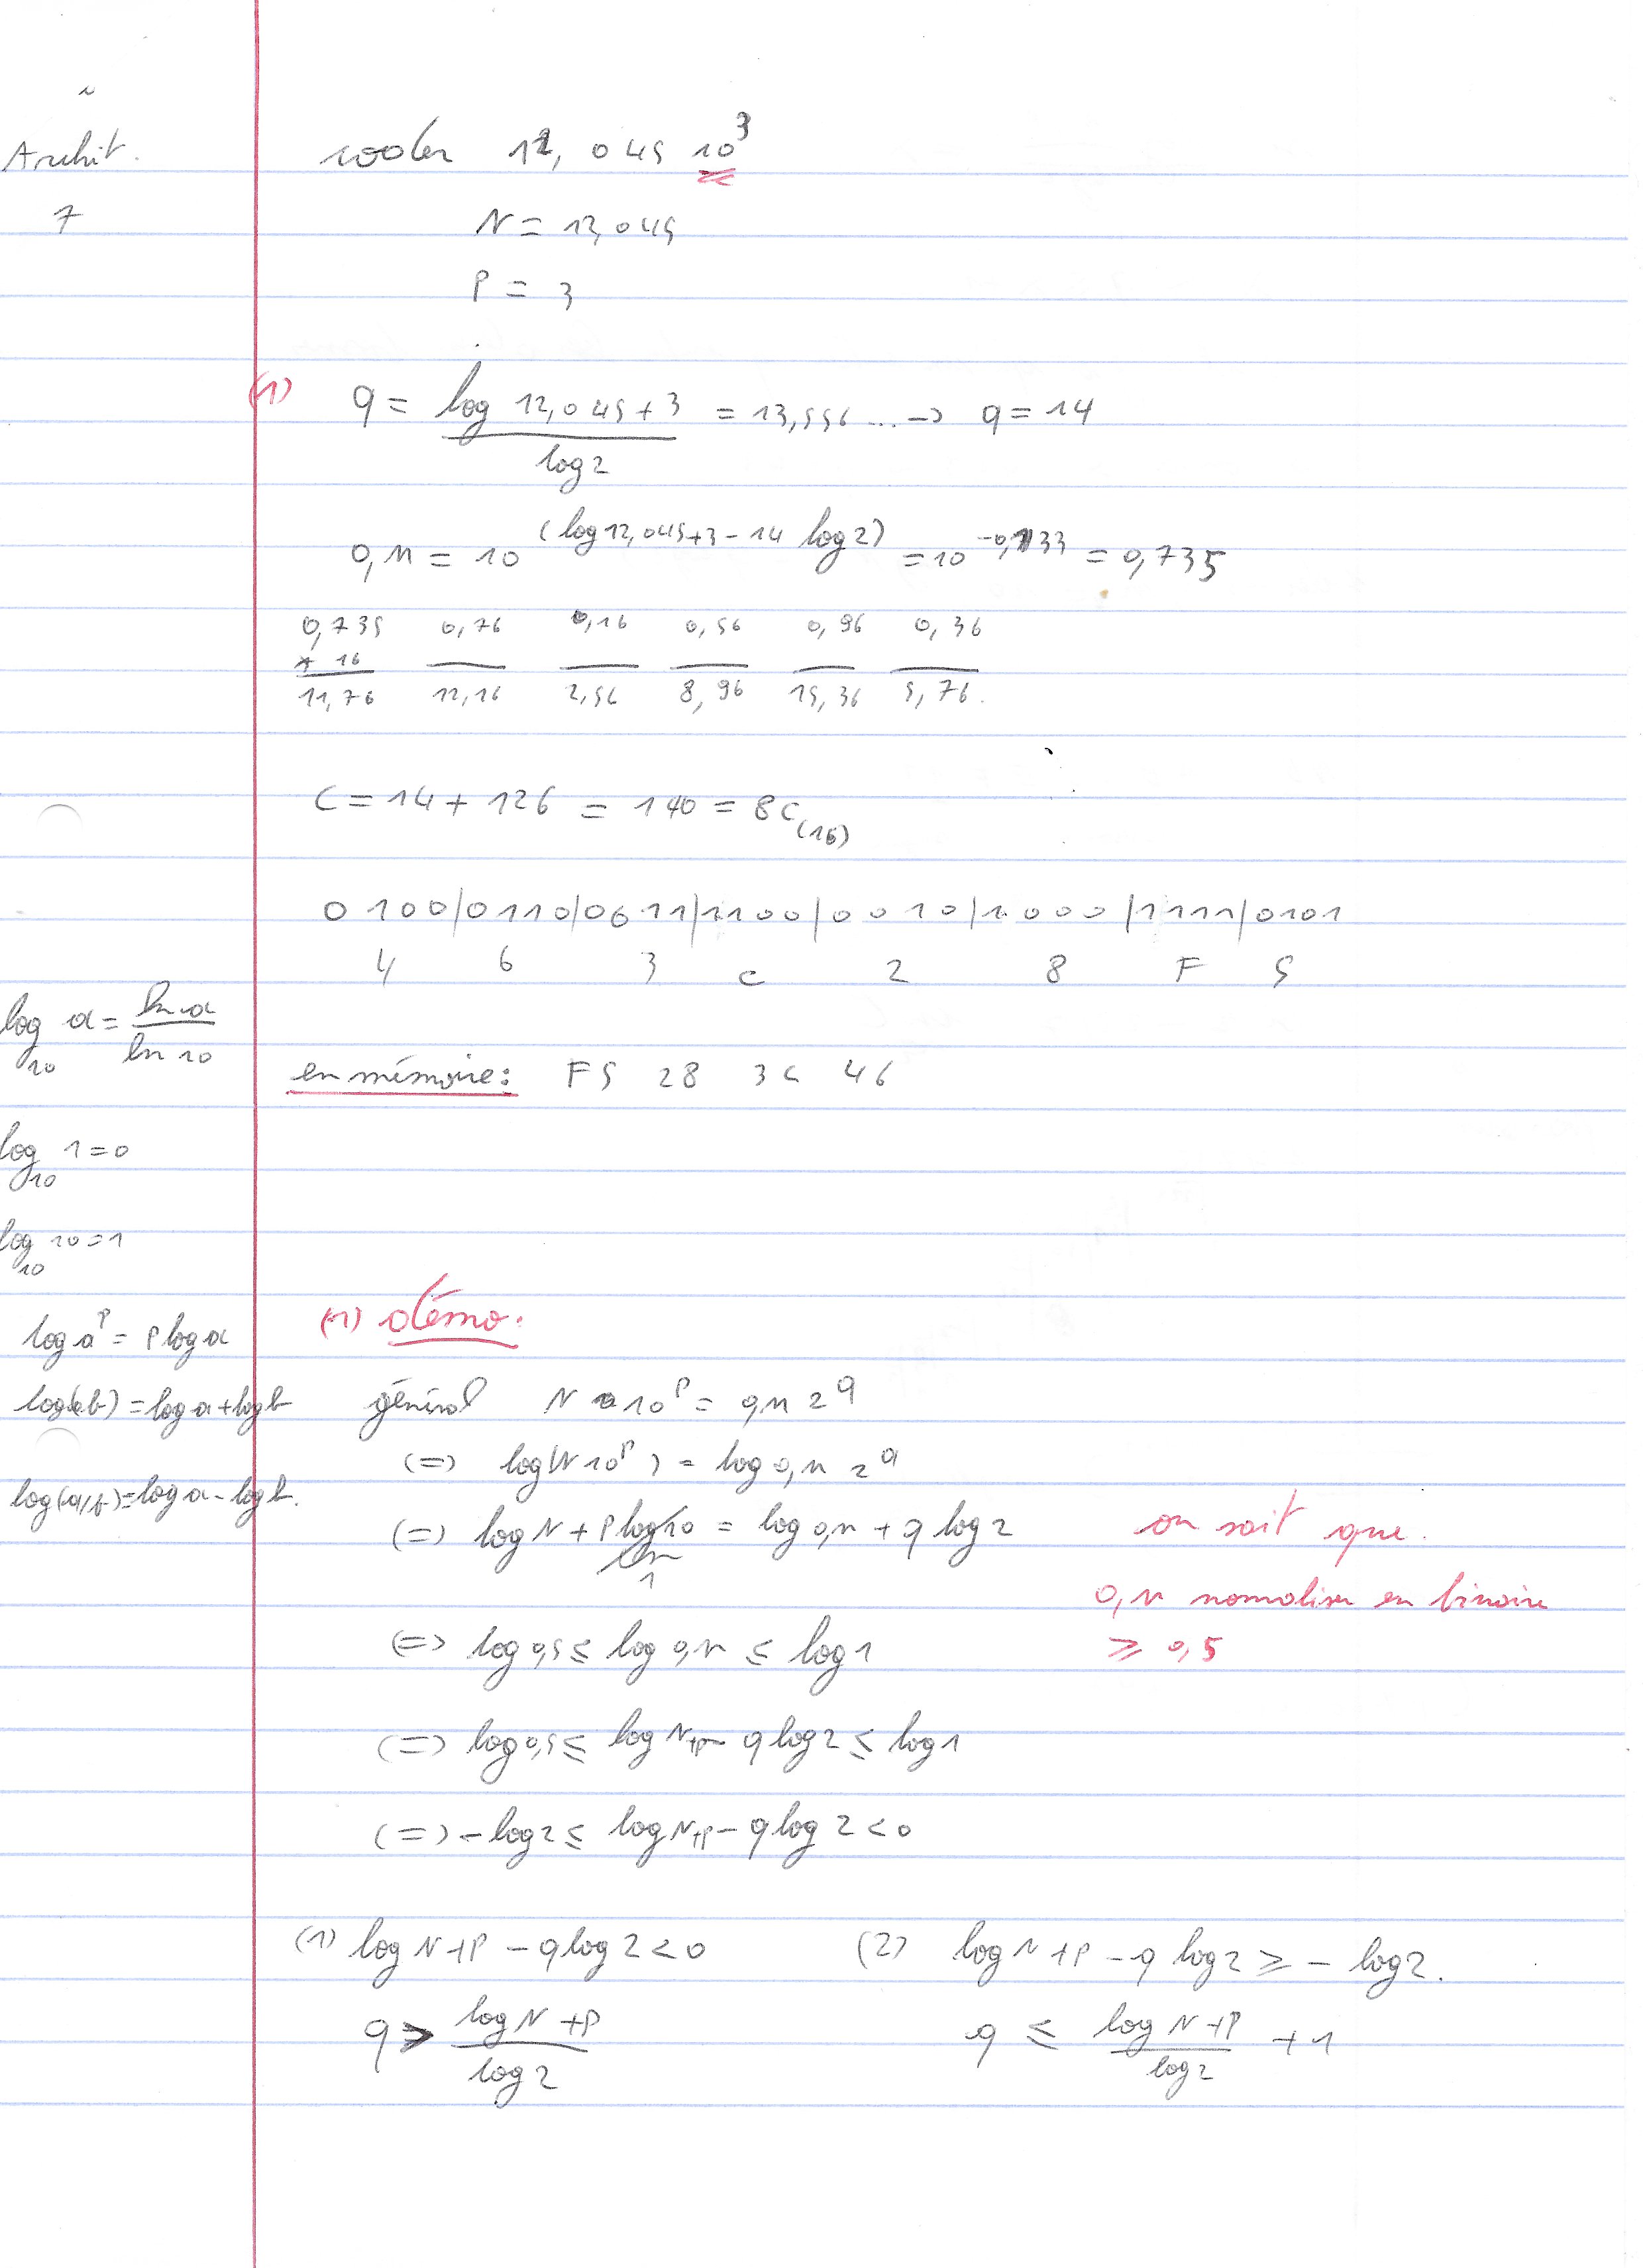 Archit.
7
coder 12,045 10^3
N = 12,045
P = 3
(1) q = (log 12,045 + 3) / log 2 = 13,556 ... → q = 14
0,n = 10^(log 12,045 + 3 - 14 log 2) = 10^-0,133 = 0,735
0,735 0,76 0,16 0,56 0,96 0,36
* 16
11,76 12,16 2,56 8,96 15,36 5,76.
C = 14 + 126 = 140 = 8C(16)
0100/0110/0011/1100/0010/1000/1111/0101
4 6 3 C 2 8 F 5
log_10 a = ln a / ln 10
en mémoire: F5 28 3C 46
log_10 1 = 0
log_10 10 = 1
(1) démo.
log a^P = P log a
log(a.b) = log a + log b
général N 10^P = 0,n 2^q
(=) log(N 10^P) = log 0,n 2^q
log(a/b) = log a - log b.
(=) log N + P log 10 = log 0,n + q log 2
1
on sait que.
0,n normaliser en binaire
≥ 0,5
(=) log 0,5 ≤ log 0,n ≤ log 1
(=) log 0,5 ≤ log N+P - q log 2 ≤ log 1
(=) - log 2 ≤ log N+P - q log 2 < 0
(1) log N + P - q log 2 < 0 (2) log N + P - q log 2 ≥ - log 2.
q > (log N + P) / log 2 q ≤ (log N + P) / log 2 + 1